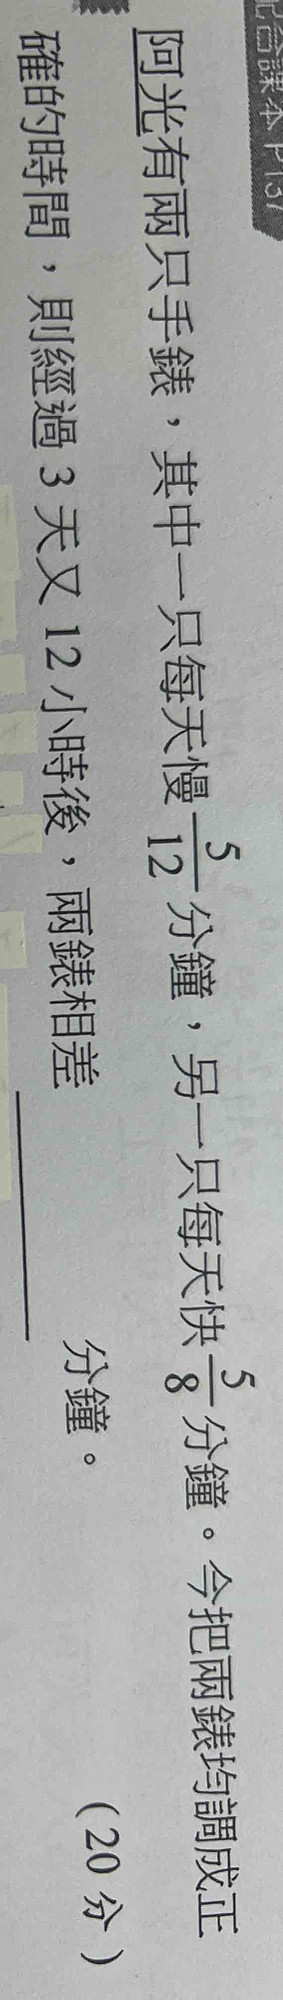 配合課本 P137
阿光有兩只手錶，其中一只每天慢 5/12 分鐘，另一只每天快 5/8 分鐘。今把兩錶均調成正
確的時間，則經過 3 天又 12 小時後，兩錶相差________分鐘。 （20 分）